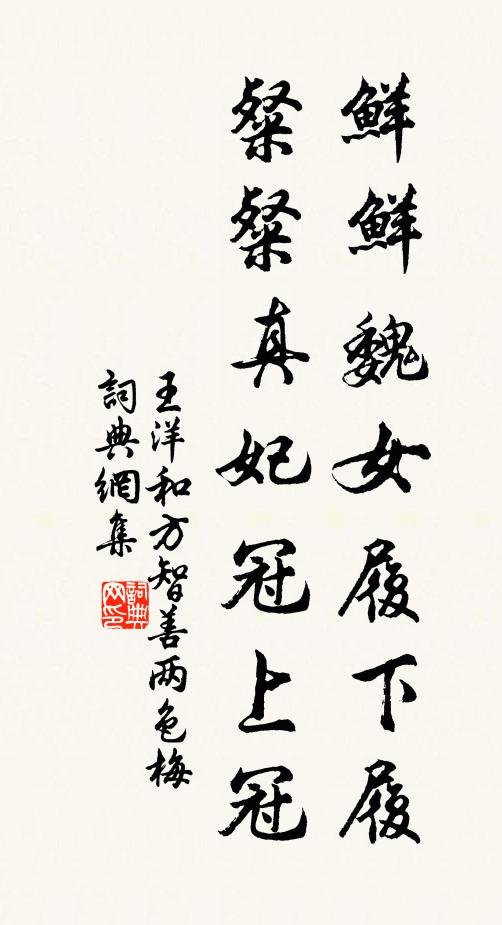 鮮鮮魏女履下履
粲粲真妃冠上冠
王洋和方智善两色梅
詞典網集
詞典网印